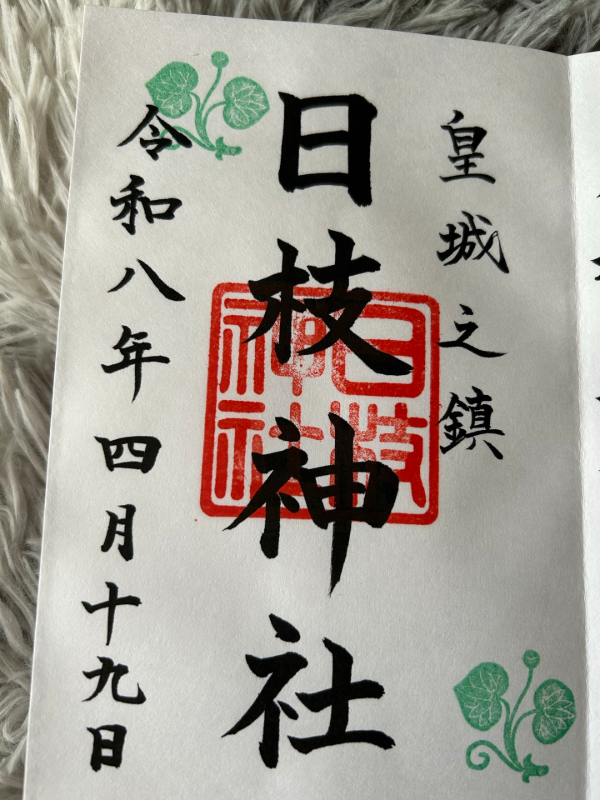 皇城之鎮
日枝神社
日枝神社
令和八年四月十九日